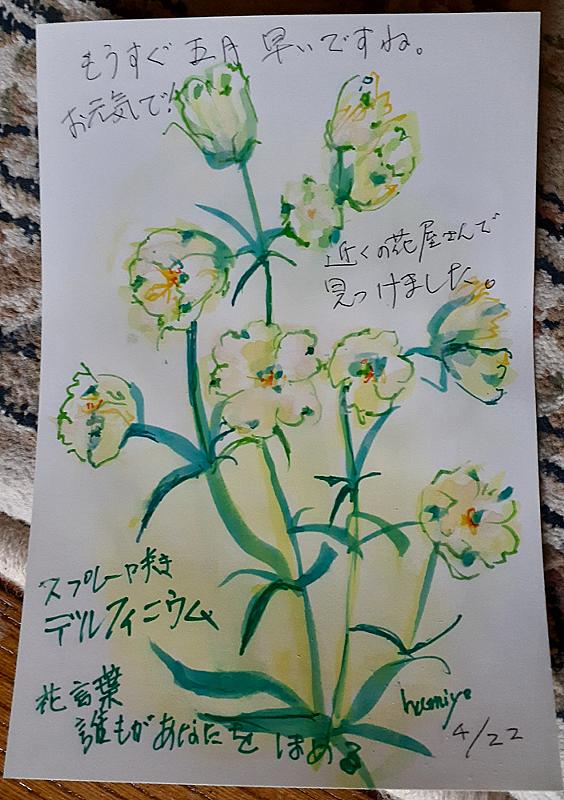 もうすぐ五月 早いですね。
お元気で!
近くの花屋さんで
見つけました。
スプレー咲き
デルフィニウム
花言葉
誰もがあなたを ほめる
humiyo
4/22